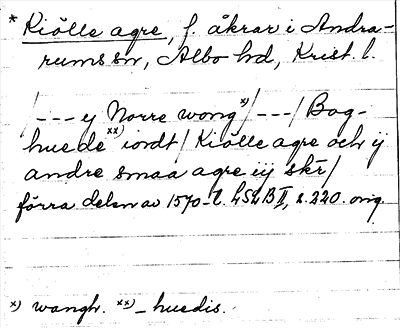 * Kiölle agre, f. åkrar i Andra-
rums sn, Albo hd, Krist. l.
/--- ij Norre wong x)/---/ Bog-
huede xx) iordt/ Kiölle agre och ij
andre smaa agre iij skr/
förra delen av 1570-t. LSLB II, s. 220. orig.
x) wangh. xx) - huedis.